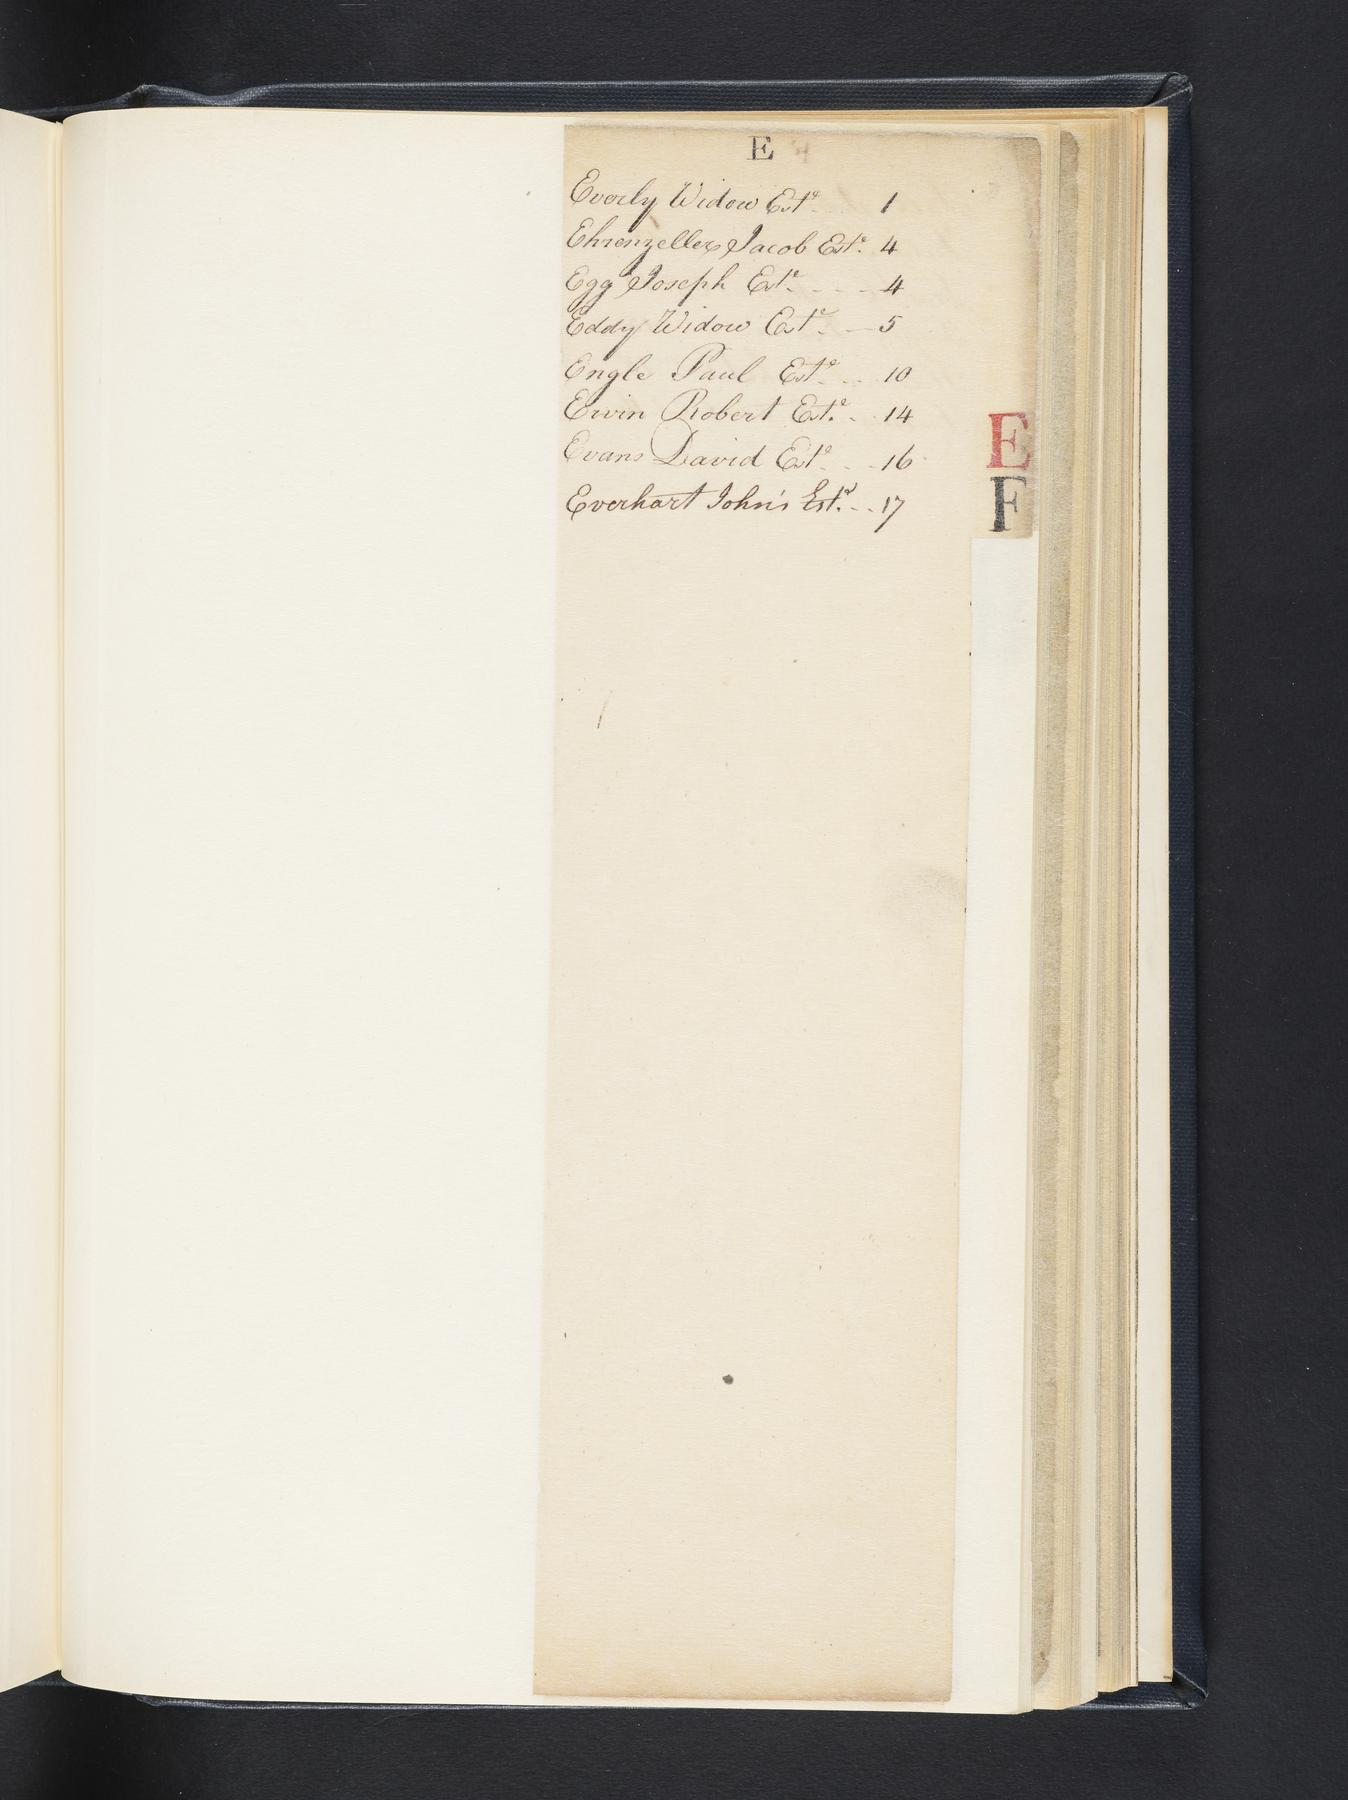 E
Everly Widow Est.e 1
Ehrenzeller Jacob Est.e 4
Egg Joseph Est.e - - - 4
Eddy Widow Est.e - 5
Engle Paul Est.e - - 10
Erwin Robert Est.e - - 14
Evans David Est.e - - 16
Everhart John's Est.e - - 17
E
F